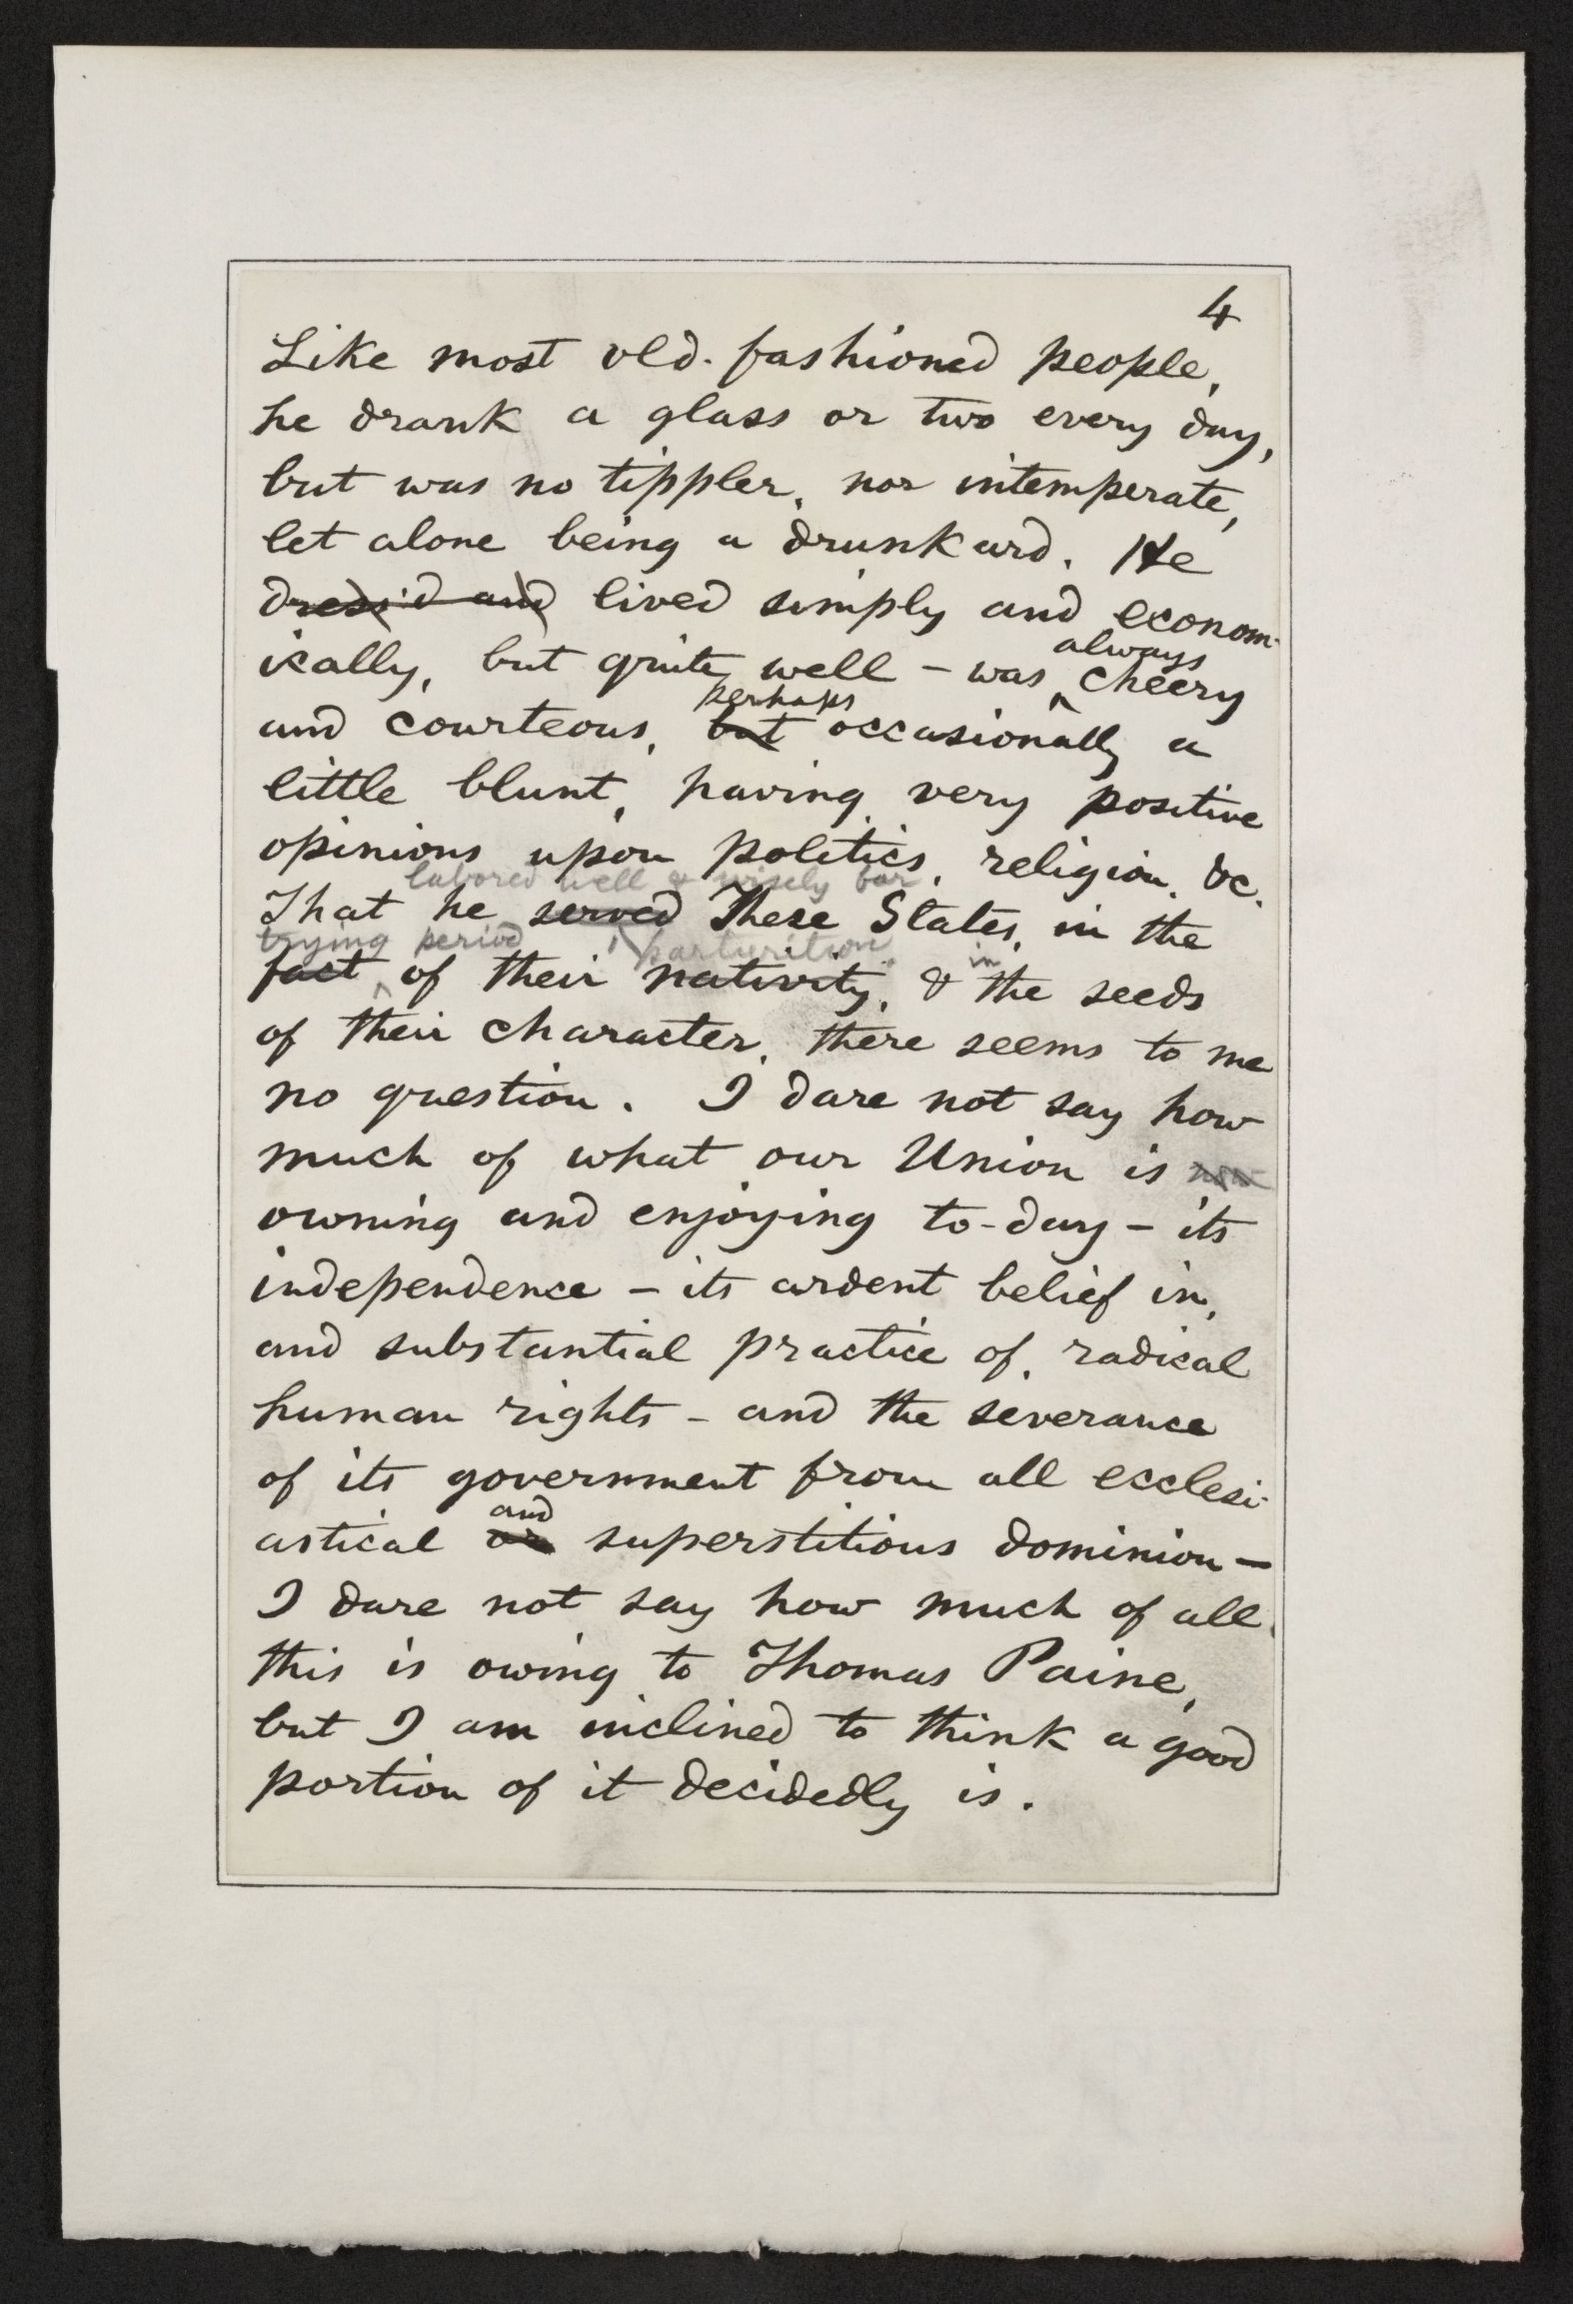 4
Like most old-fashioned people,
he drank a glass or two every day,
but was no tippler, nor intemperate,
let alone being a drunkard. He
dress'd and lived simply and econom-
always
ically, but quite well – was cheery
perhaps
and courteous, but occasionally a
little blunt, having very positive
opinions upon politics, religion, &c.
labored well & wisely for
That he served These States, in the
trying period parturition, in
fact of their nativity, & the seeds
of their character, there seems to me
no question. I dare not say how
much of what our Union is now
owning and enjoying to-day – its
independence – its ardent belief in,
and substantial practice of, radical
human rights – and the severance
of its government from all ecclesi-
and
astical or superstitious dominion –
I dare not say how much of all
this is owing to Thomas Paine,
but I am inclined to think a good
portion of it decidedly is.